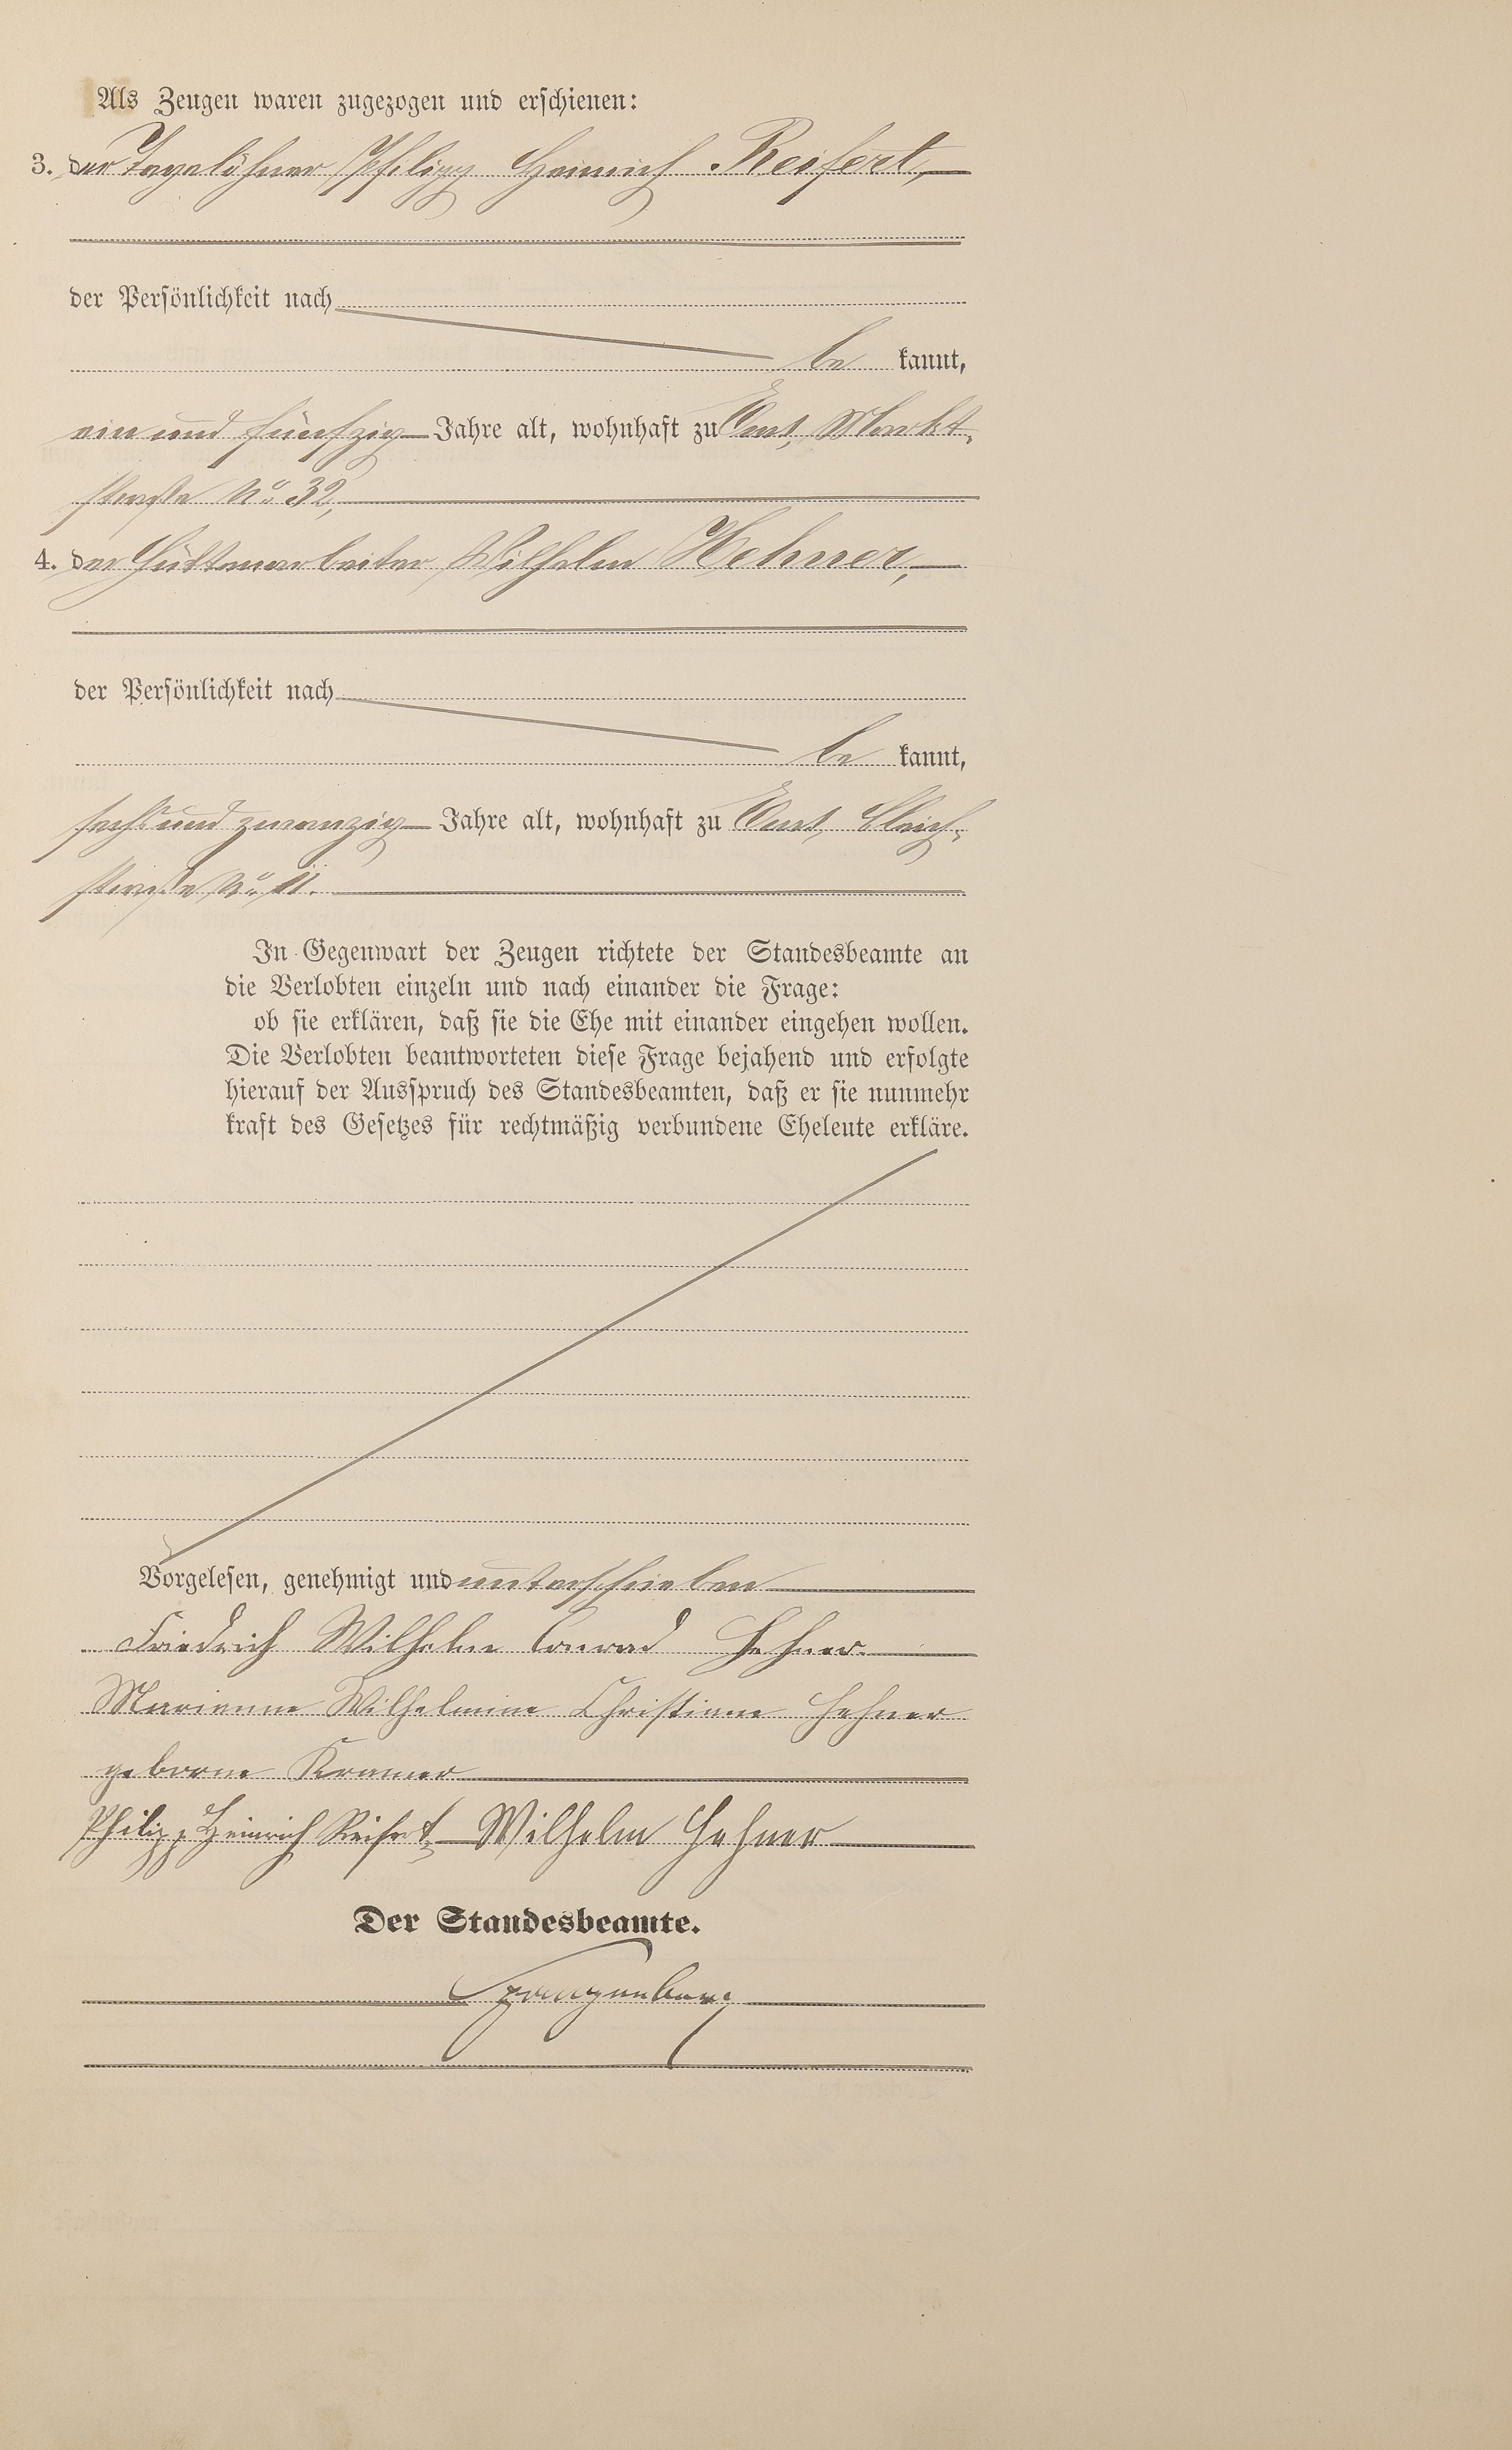 Als Zeugen waren zugezogen und erschienen:
3. der Tagelöhner Philipp Heinrich Reifert,
der Persönlichkeit nach
be kannt,
ein und fünfzig Jahre alt, wohnhaft zu Ems, Markt-
straße No 32,
4. der Hüttenarbeiter Wilhelm Hehner,
der Persönlichkeit nach
be kannt,
sechs und zwanzig Jahre alt, wohnhaft zu Ems, Bleich-
straße No 11.
In Gegenwart der Zeugen richtete der Standesbeamte an
die Verlobten einzeln und nach einander die Frage:
ob sie erklären, daß sie die Ehe mit einander eingehen wollen.
Die Verlobten beantworteten diese Frage bejahend und erfolgte
hierauf der Ausspruch des Standesbeamten, daß er sie nunmehr
kraft des Gesetzes für rechtmäßig verbundene Eheleute erkläre.
Vorgelesen, genehmigt und unterschrieben
Friedrich Wilhelm Conrad Hehner.
Marianne Wilhelmine Christiane Hehner
geborne Kramer
Philipp Heinrich Reifert, Wilhelm Hehner
Der Standesbeamte.
Spangenberg